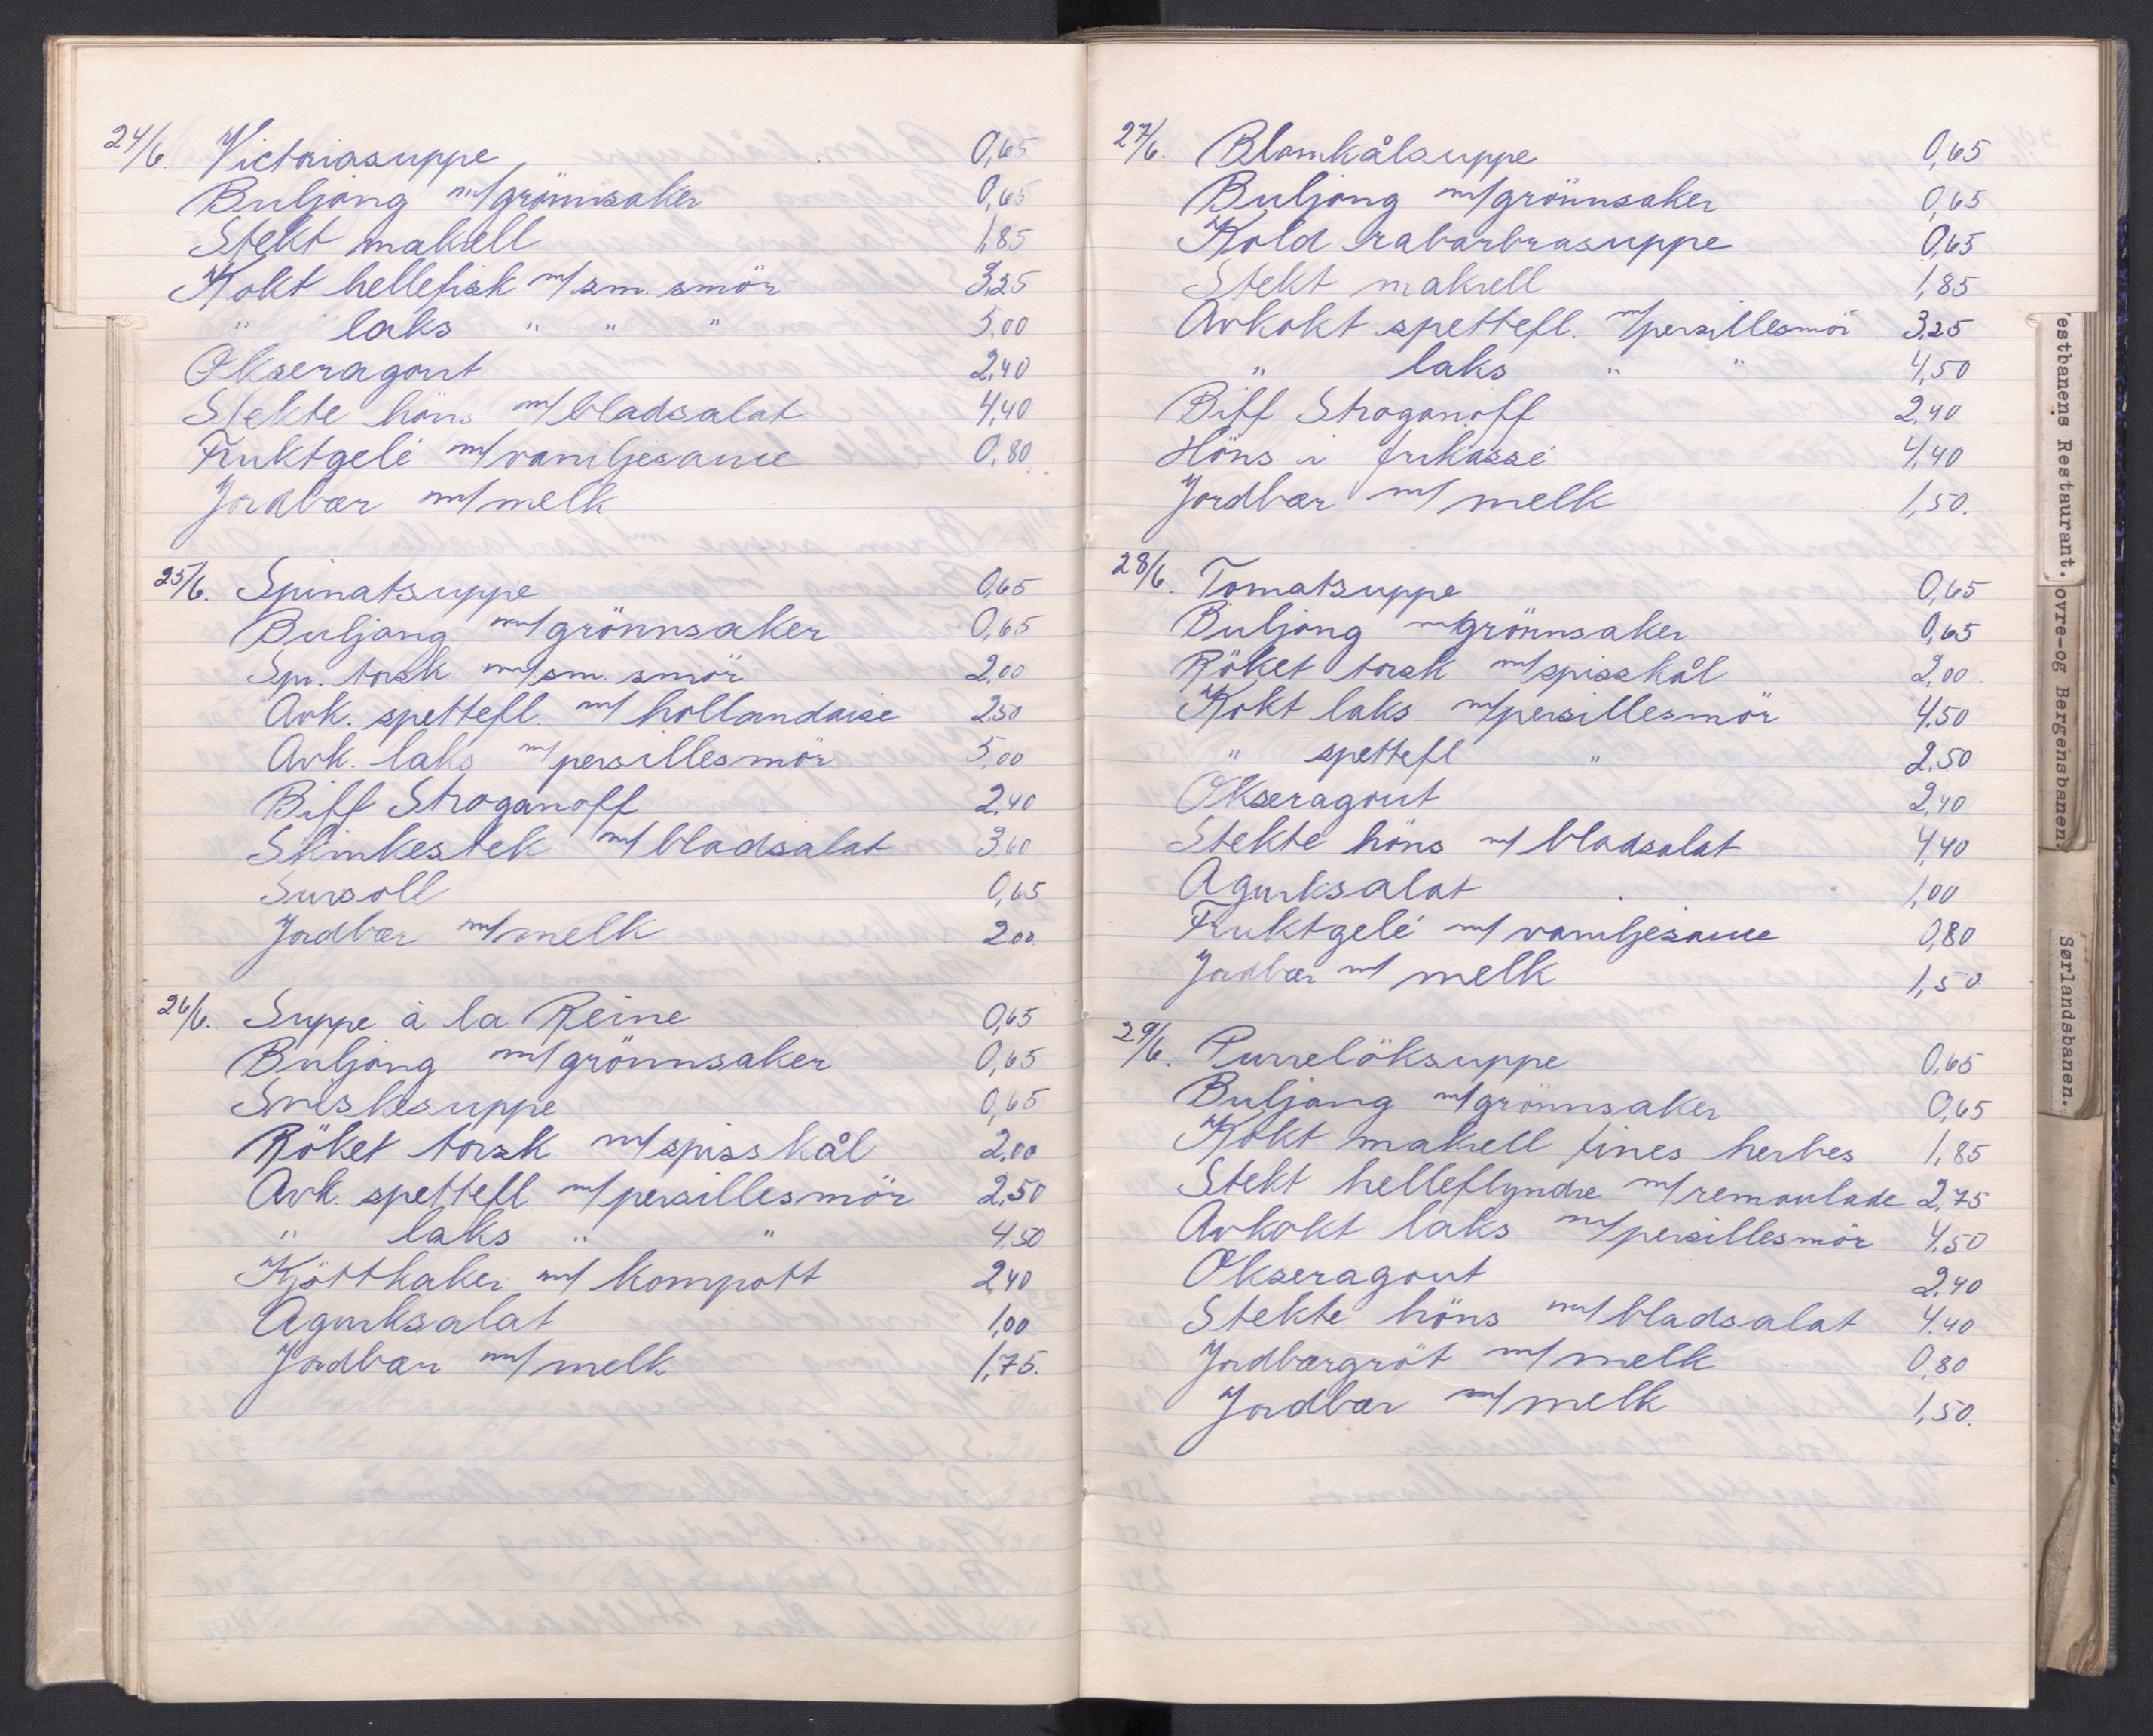 24/6. Victoriasuppe 0,65
Buljong m/grönnsaker 0,65
Stekt makrell 1,85
Kokt hellefisk m/sm. smör 3,25
" laks " " " 5,00
Okseragout 2,40
Stekte höns m/bladsalat 4,40
Fruktgelé m/vaniljesauce 0,80
Jordbær m/melk
25/6. Spinatsuppe 0,65
Buljong m/grönnsaker 0,65
Spr. torsk m/sm. smör 2,00
Avk. spettefl. m/hollandaise 2,50
Avk. laks m/persillesmör 5,00
Biff Stroganoff 2,40
Skinkestek m/bladsalat 3,60
Sursoll 0,65
Jordbær m/melk 2,00
26/6. Suppe à la Reine 0,65
Buljong m/grönnsaker 0,65
Sviskesuppe 0,65
Röket torsk m/spisskål 2,00
Avk. spettefl. m/persillesmör 2,50
" laks " " 4,50
Kjöttkaker m/kompott 2,40
Agurksalat 1,00
Jordbær m/melk 1,75.
27/6. Blomkålsuppe 0,65
Buljong m/grönnsaker 0,65
Kold rabarbrasuppe 0,65
Stekt makrell 1,85
Avkokt spettefl. m/persillesmör 3,25
" laks " " 4,50
Biff Stroganoff 2,40
Höns i frikassé 4,40
Jordbær m/melk 1,50.
28/6. Tomatsuppe 0,65
Buljong m/grönnsaker 0,65
Röket torsk m/spisskål 2,00
Kokt laks m/persillesmör 4,50
" spettefl " 2,50
Okseragout 2,40
Stekte höns m/bladsalat 4,40
Agurksalat 1,00
Fruktgelé m/vaniljesauce 0,80
Jordbær m/melk 1,50
29/6. Purrelöksuppe 0,65
Buljong m/grönnsaker 0,65
Kokt makrell fines herbes 1,85
Stekt helleflyndre m/remoulade 2,75
Avkokt laks m/persillesmör 4,50
Okseragout 2,40
Stekte höns m/bladsalat 4,40
Jordbærgröt m/melk 0,80
Jordbær m/melk 1,50.
estbanens Restaurant.
ovre-og Bergensbanen.
Sørlandsbanen.